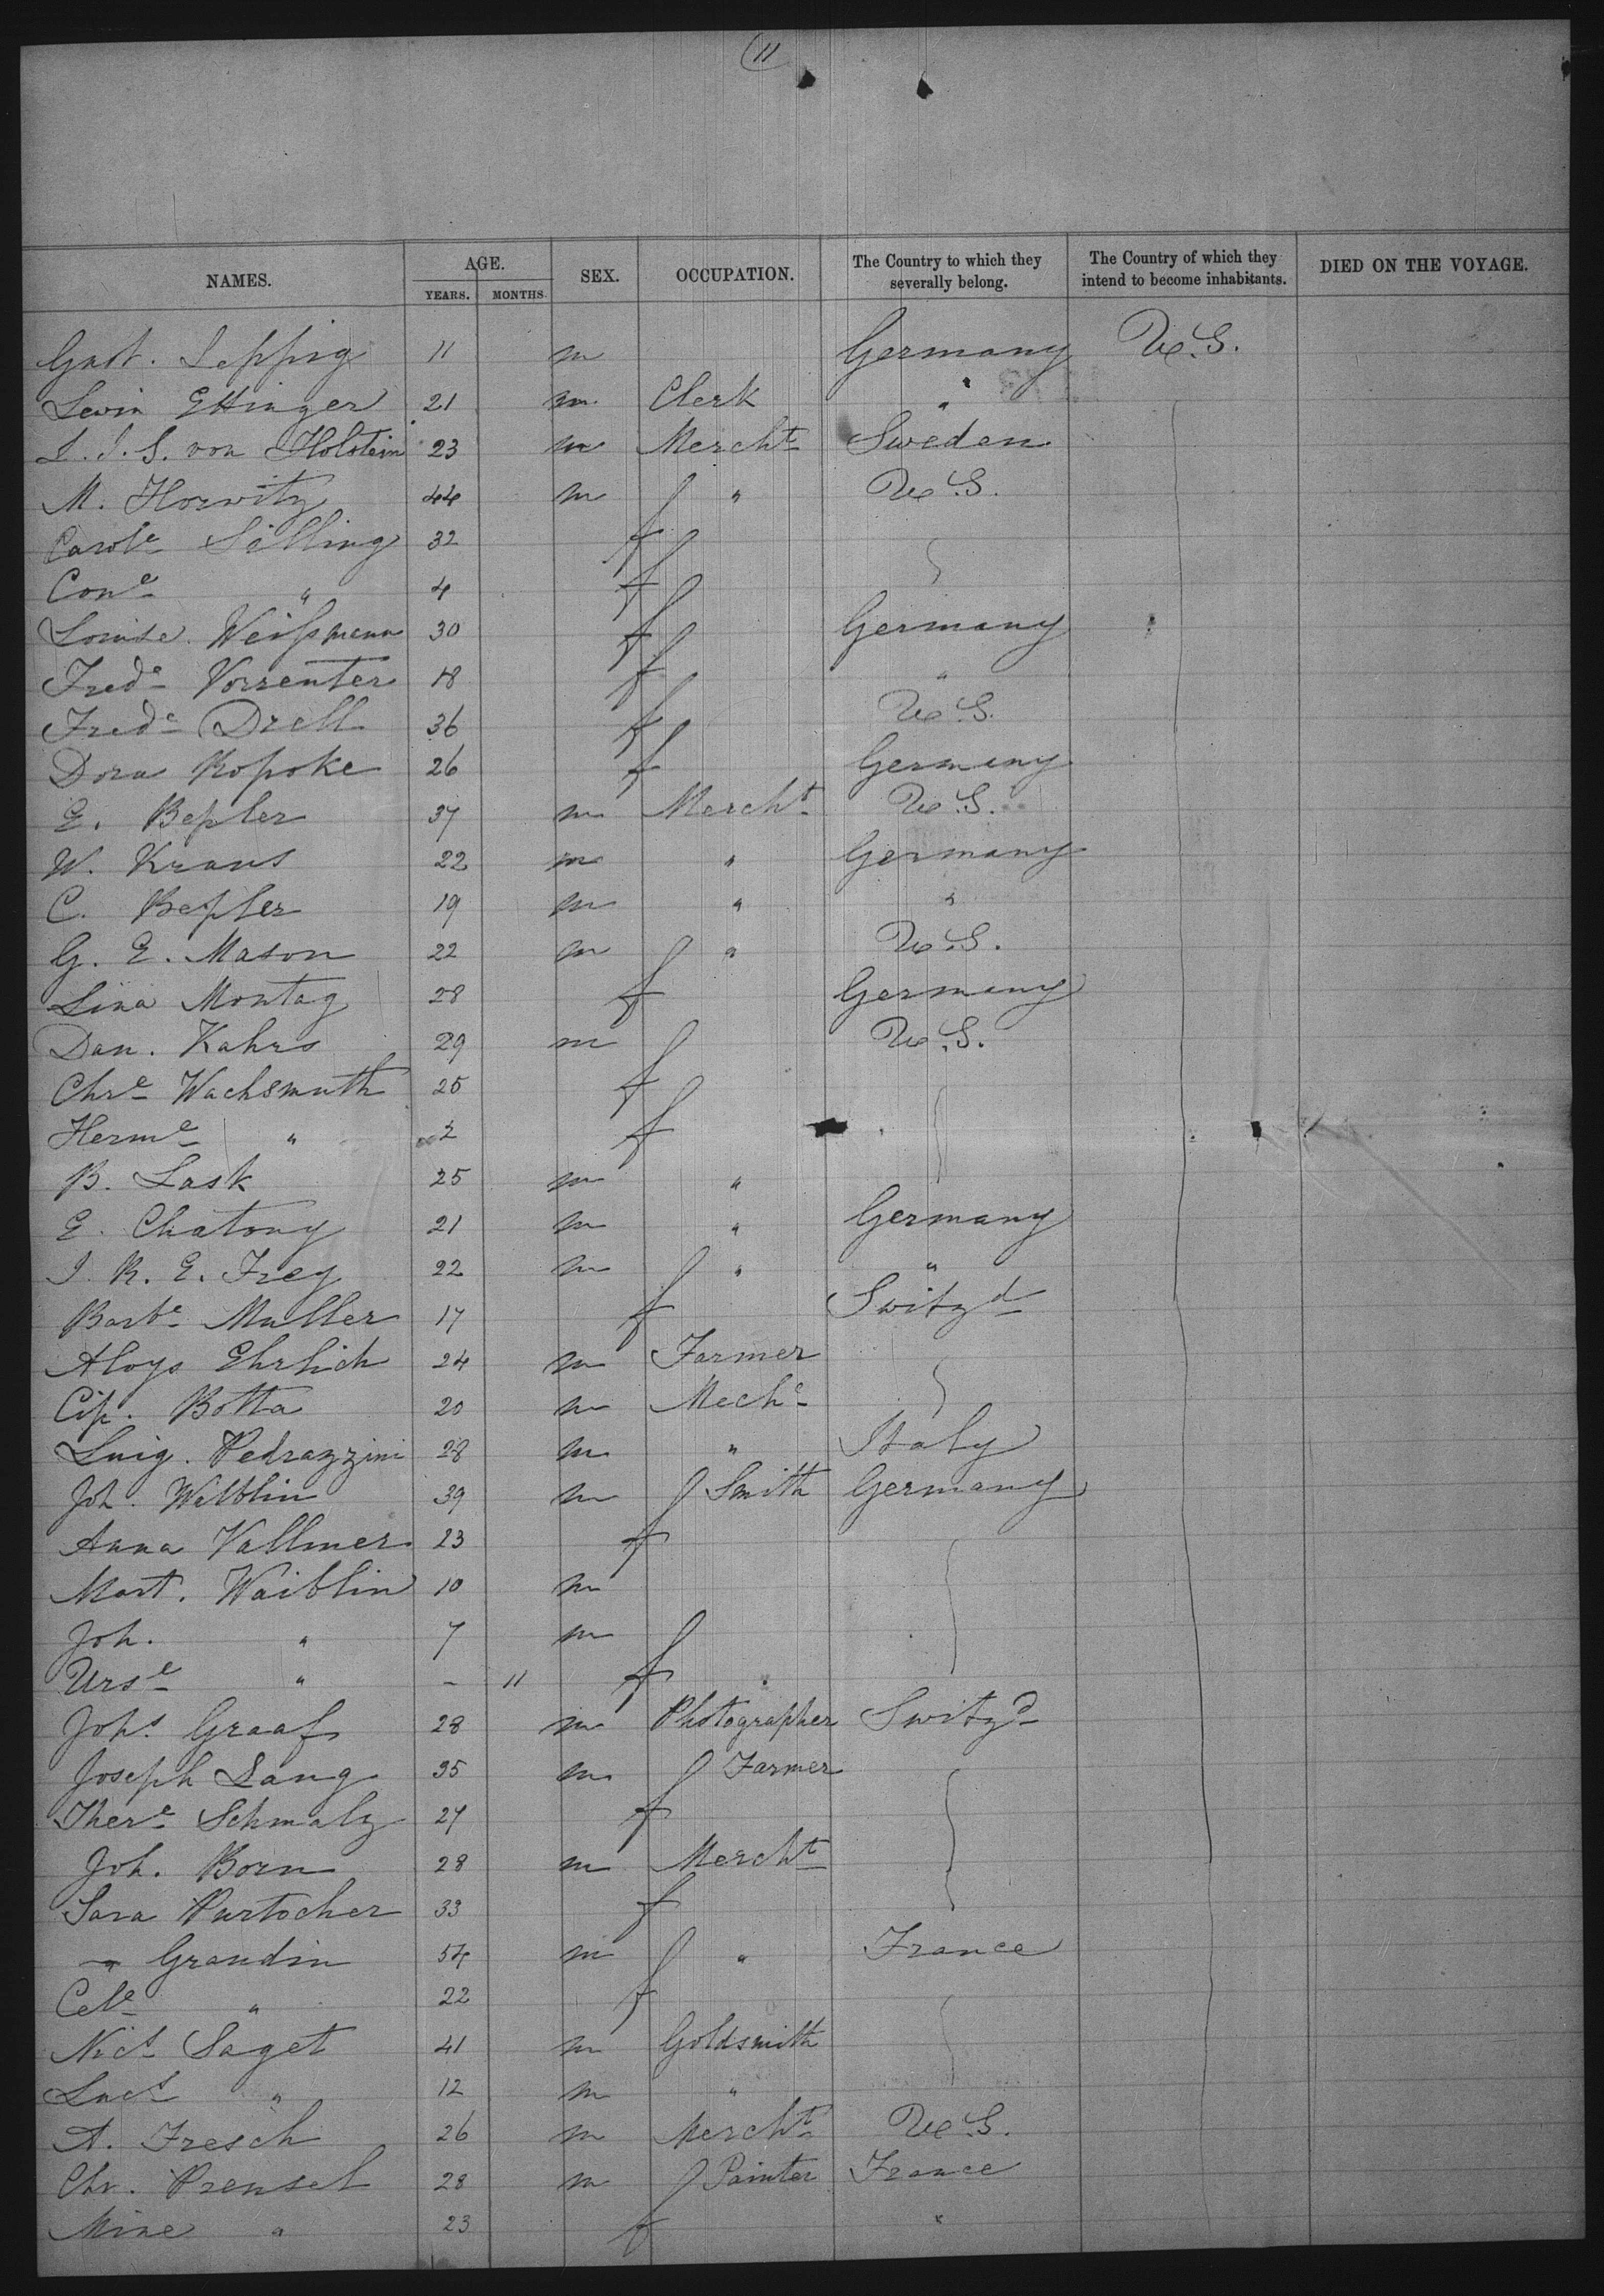 11
NAMES. AGE. YEARS. MONTHS. SEX. OCCUPATION. The Country to which they severally belong. The Country of which they intend to become inhabitants. DIED ON THE VOYAGE.
Gust. Leppig 11 m Germany U.S.
Levin Ettinger 21 m Clerk "
L. J. S. von Holstein 23 m Mercht Sweden
M. Horwitz 44 m " U.S.
Carole Silling 32 f
Cone " 4 f
Louise Weißmann 30 f Germany
Frede Vorrenter 18 f "
Frede Drell 36 f U.S.
Dora Kopoke 26 f Germany
E. Bepler 37 m Mercht U.S.
W. Kraus 22 m " Germany
C. Bepler 19 m " "
G. E. Mason 22 m " U.S.
Lina Montag 28 f Germany
Dan. Kahrs 29 m U.S.
Chre Wachsmuth 25 f
Herme " 2 f
B. Lask 25 m "
E. Chatony 21 m " Germany
J. R. E. Frey 22 m " "
Barbe Muller 17 f Switzd
Aloys Ehrlich 24 m Farmer
Cip. Botta 20 m Meche
Luig. Pedrazzini 28 m " Italy
Joh. Wilblin 39 m Smith Germany
Anna Vallmer 23 f
Mart. Waiblin 10 m
Joh. " 7 m
Urse " - 11 f
Johs Graaf 28 m Photographer Switzd
Joseph Lang 35 m Farmer
There Schmalz 27 f
Joh. Born 28 m Mercht
Sara Purtocher 33 f
" Grandin 54 m " France
Cele " 22 f
Nics Saget 41 m Goldsmith
Lucs " 12 m "
A. Fresch 26 m Mercht U.S.
Chr. Prensel 28 m Painter France
Mine " 23 f "